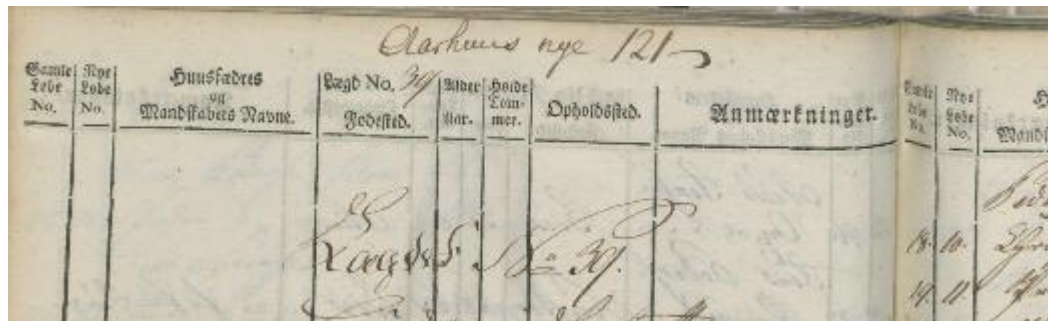 Aarhuus nye 121
Gamle Løbe No. Nye Løbe No. Huusfædres og Mandskabets Navne. Lægd No. 39 Fødested. Alder Aar. Høide Tom- mer. Opholdssted. Anmærkninger.
Gamle Løbe No. Nye Løbe No.
Lægd No 39.
18. 10.
19. 11.